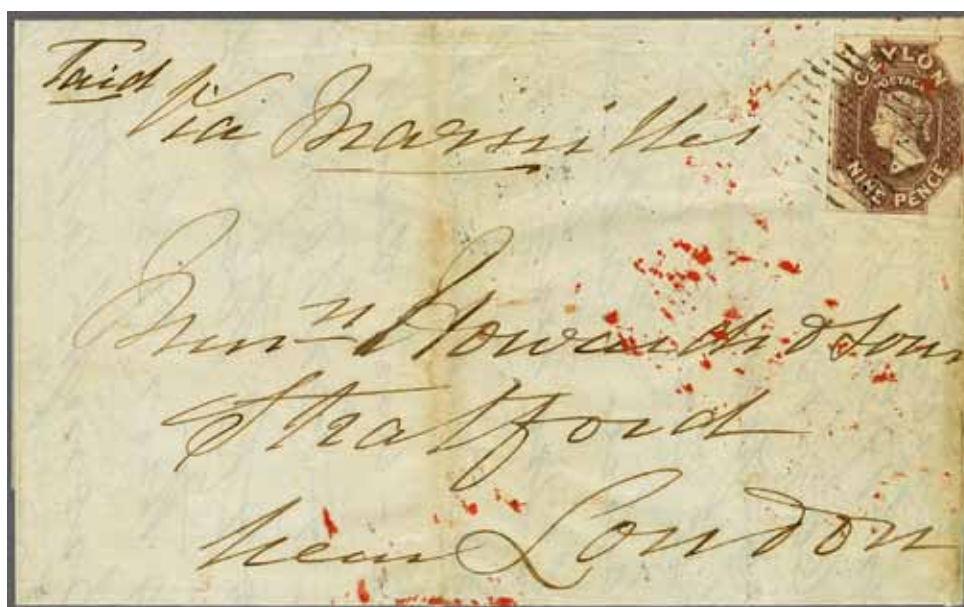 Paid
Via Marseilles
CEYLON
POSTAGE
NINE PENCE
& Sons
Stratford
near London